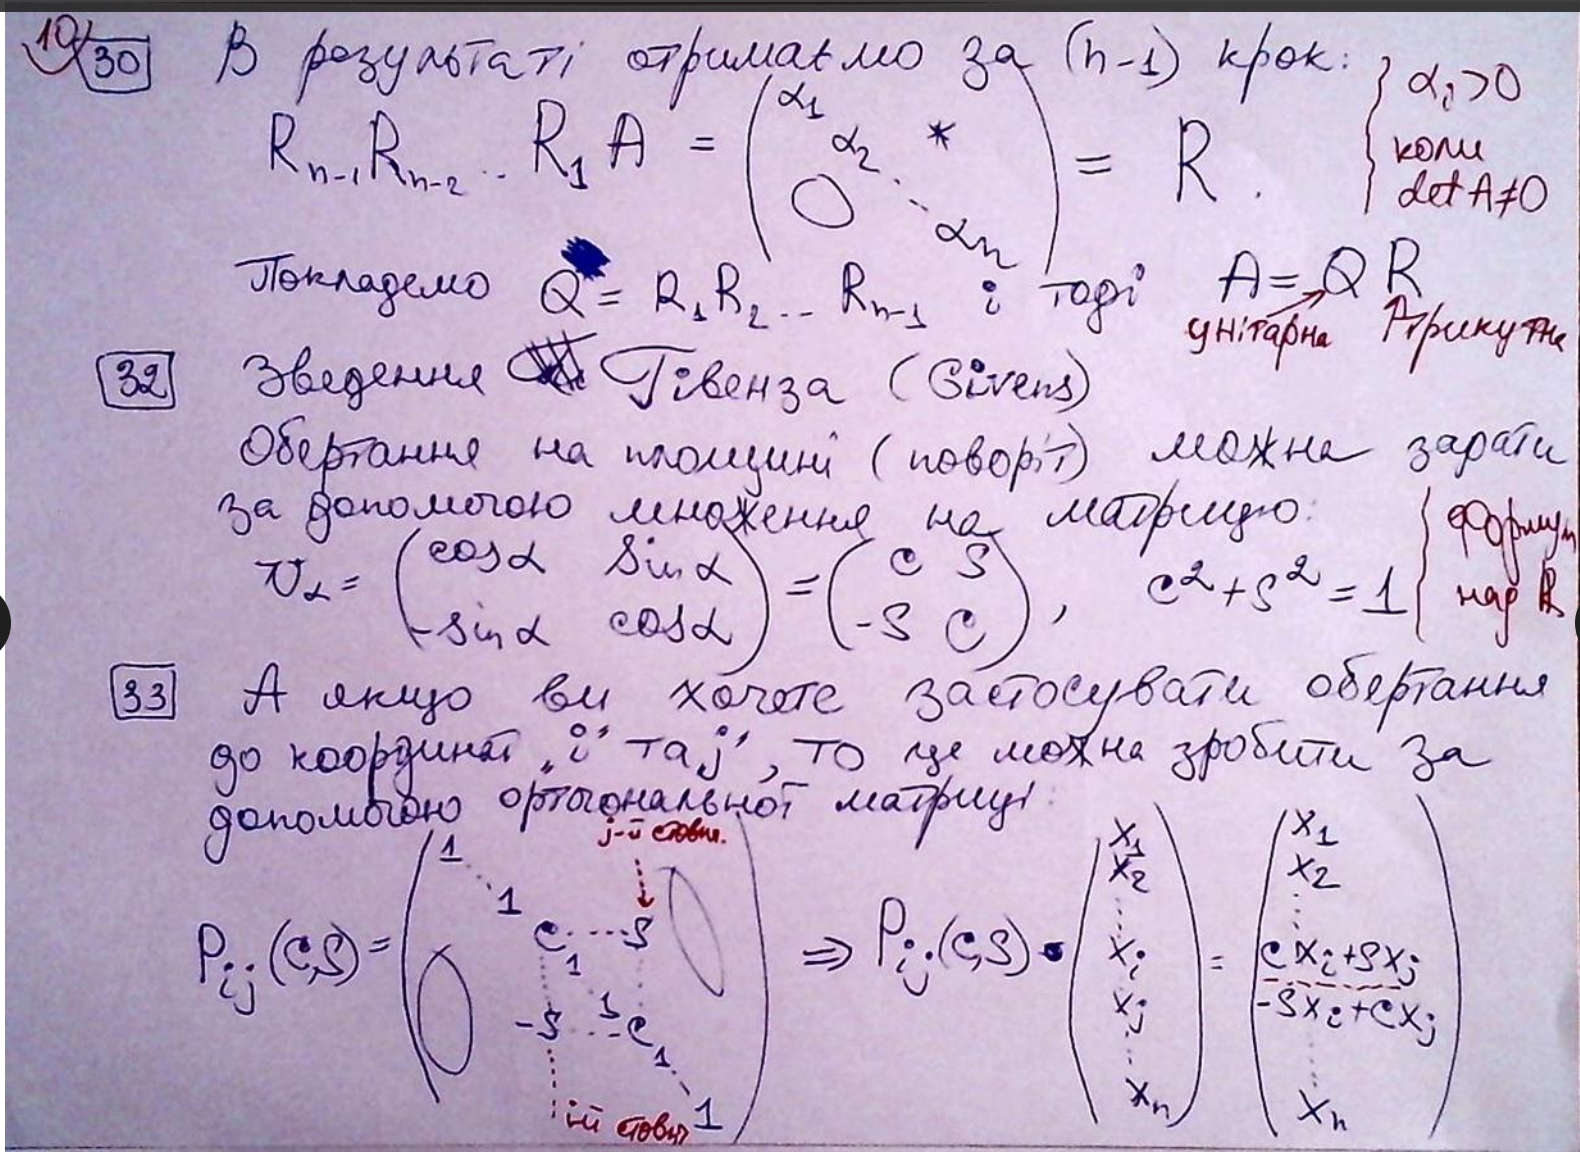 10
30 В результаті отримаємо за (n-1) крок:
R_{n-1} R_{n-2} .. R_1 A = ( α_1 α_2 * 0 ⋱ α_n ) = R .
{ α_j > 0
коли
det A ≠ 0
Покладемо Q = R_1 R_2 ... R_{n-1} і тоді A = Q R
унітарна трикутна
32 Зведення Гівенза (Givens)
Обертання на площині (поворіт) можна
за допомогою множення на матрицю:
U_α = ( cosα sinα
-sinα cosα ) = ( c s
-s c ) , c² + s² = 1
{ формули
над R
33 А якщо ви хочете застосувати обертання
до координат „i" та j", то це можна зробити за
допомогою ортогональної матриці:
j-й стовп.
P_{ij}(c,s) = ( 1 ⋱ 1 c ... s 1 ⋱ 1 -s ... c 1 ⋱ 1 0 0 ) ⇒ P_{ij}(c,s) • ( x_1 x_2 ⋮ x_i x_j ⋮ x_n ) = ( x_1 x_2 ⋮ c x_i + s x_j -s x_i + c x_j ⋮ x_n )
i-й стовп